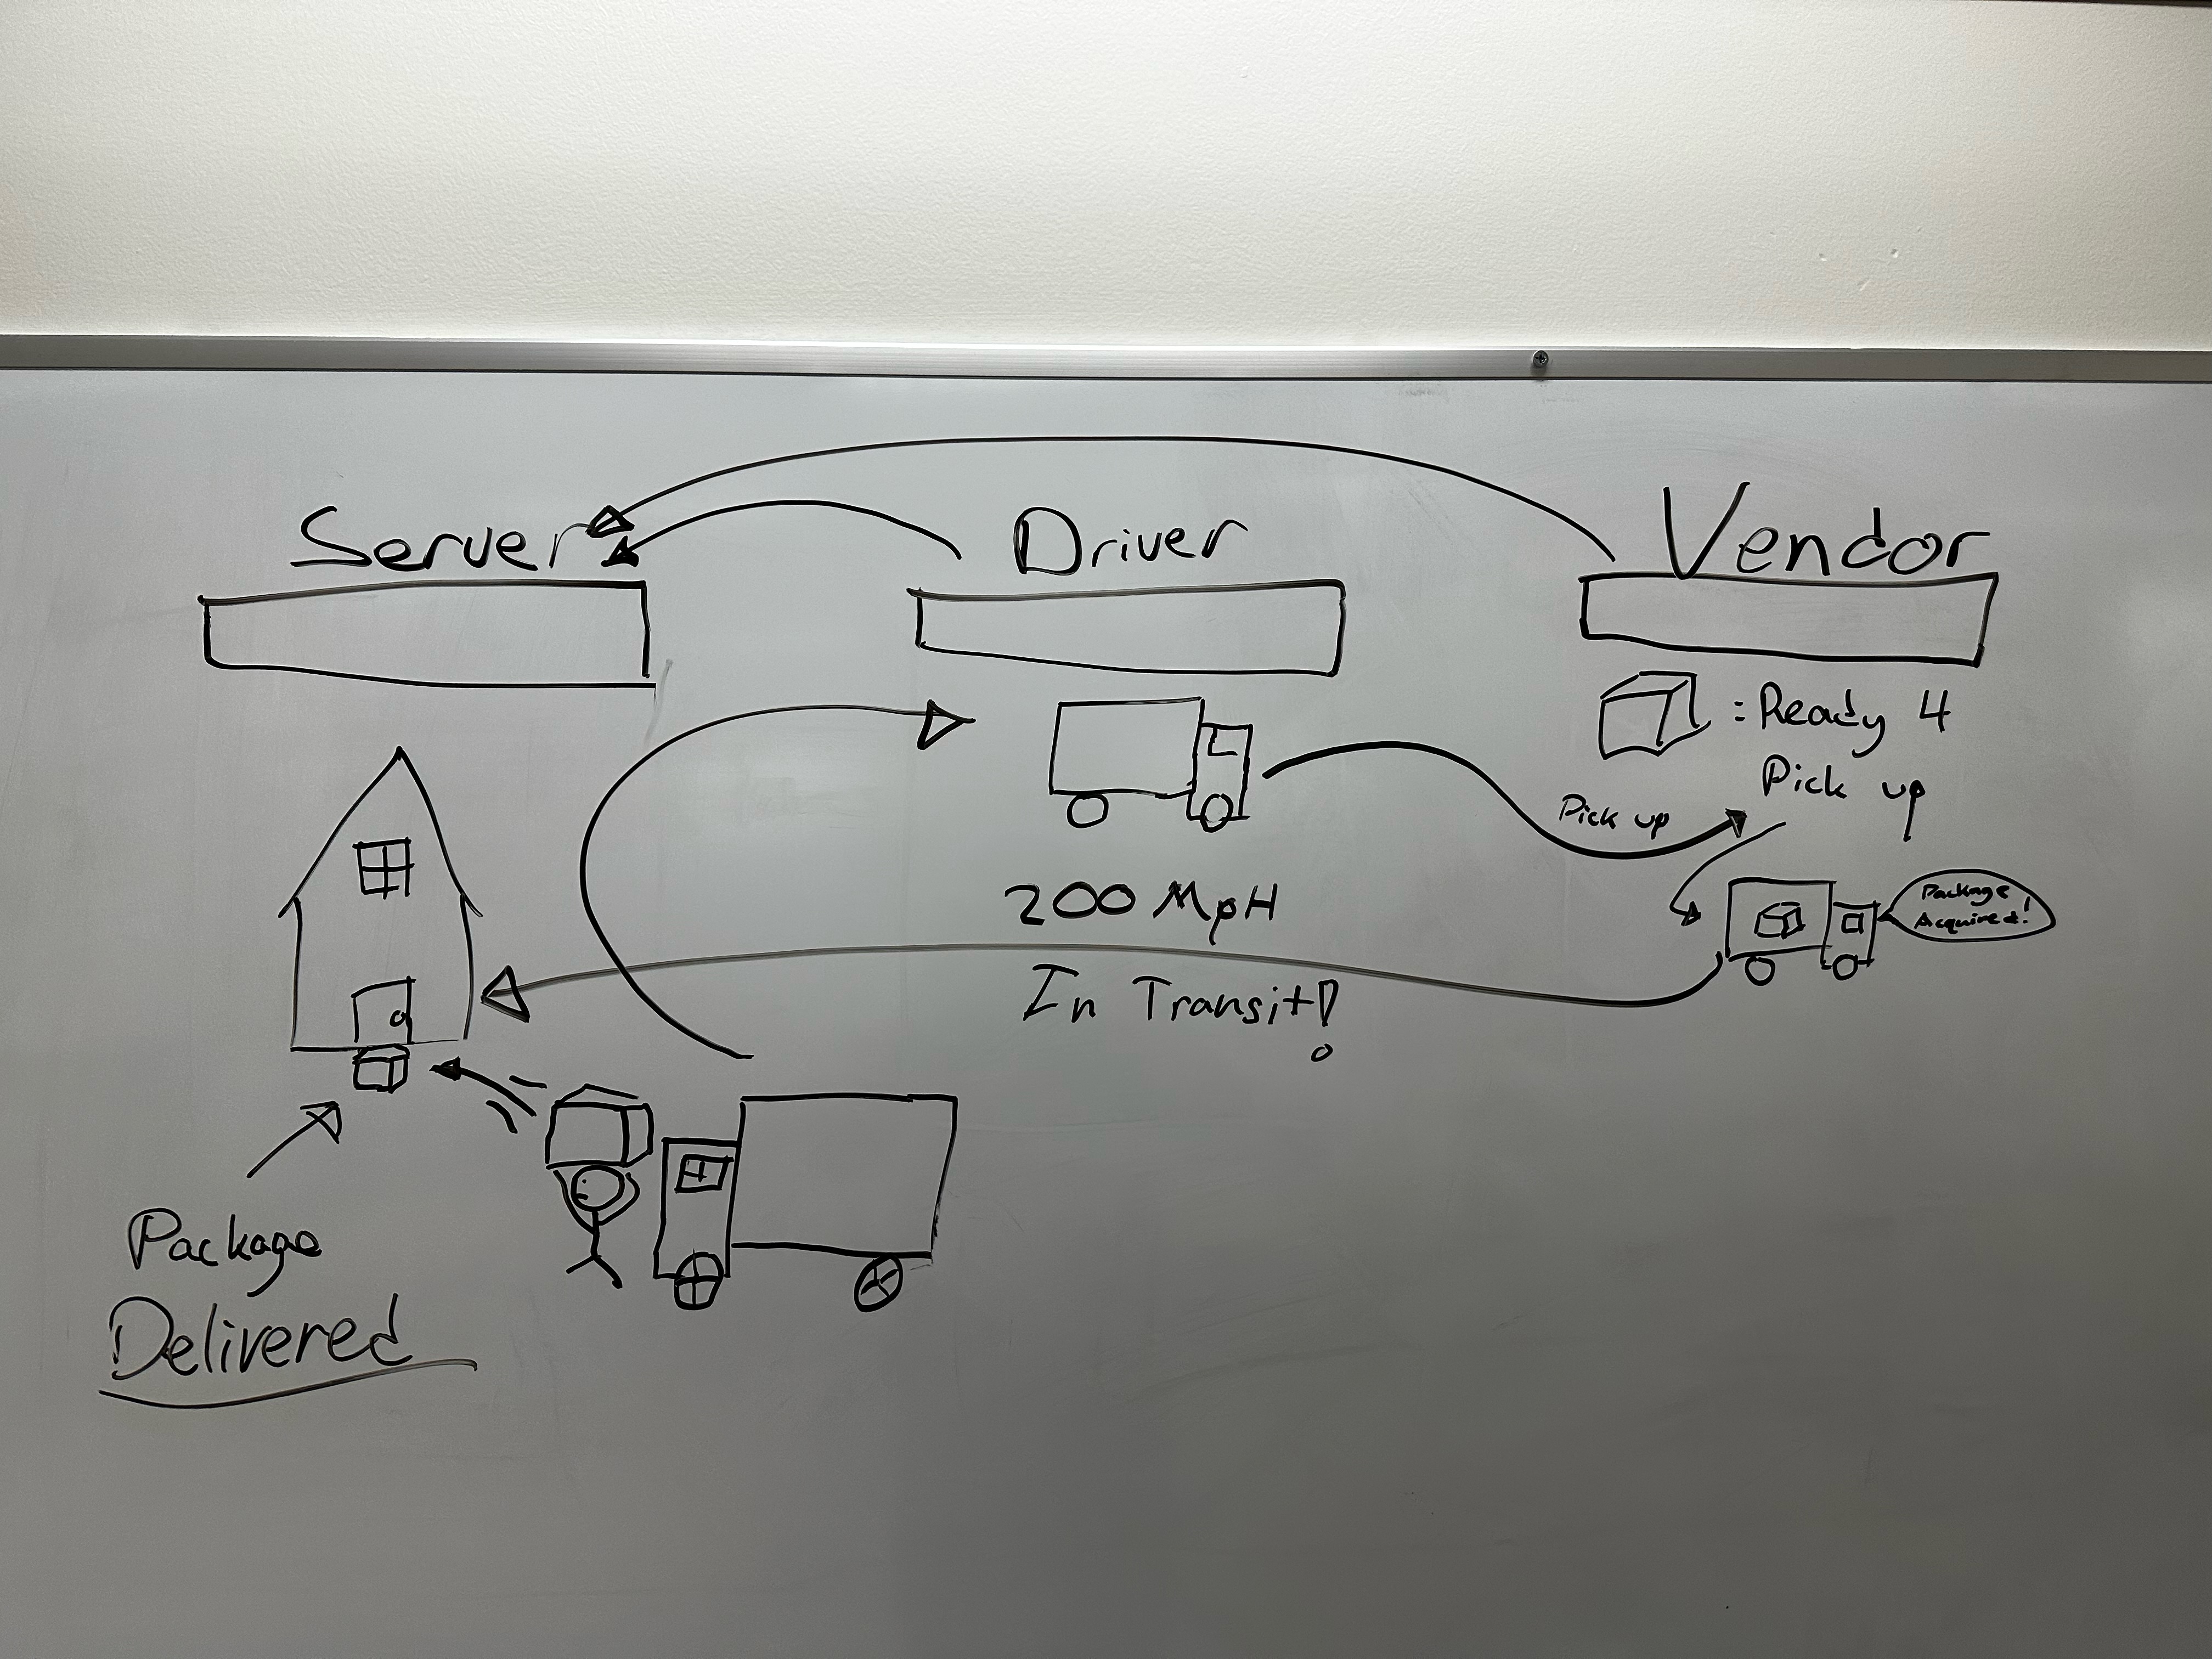 Server
Driver
Vendor
: Ready 4
Pick up
Pick up
Package
Acquired!
200 MpH
In Transit!
Package
Delivered